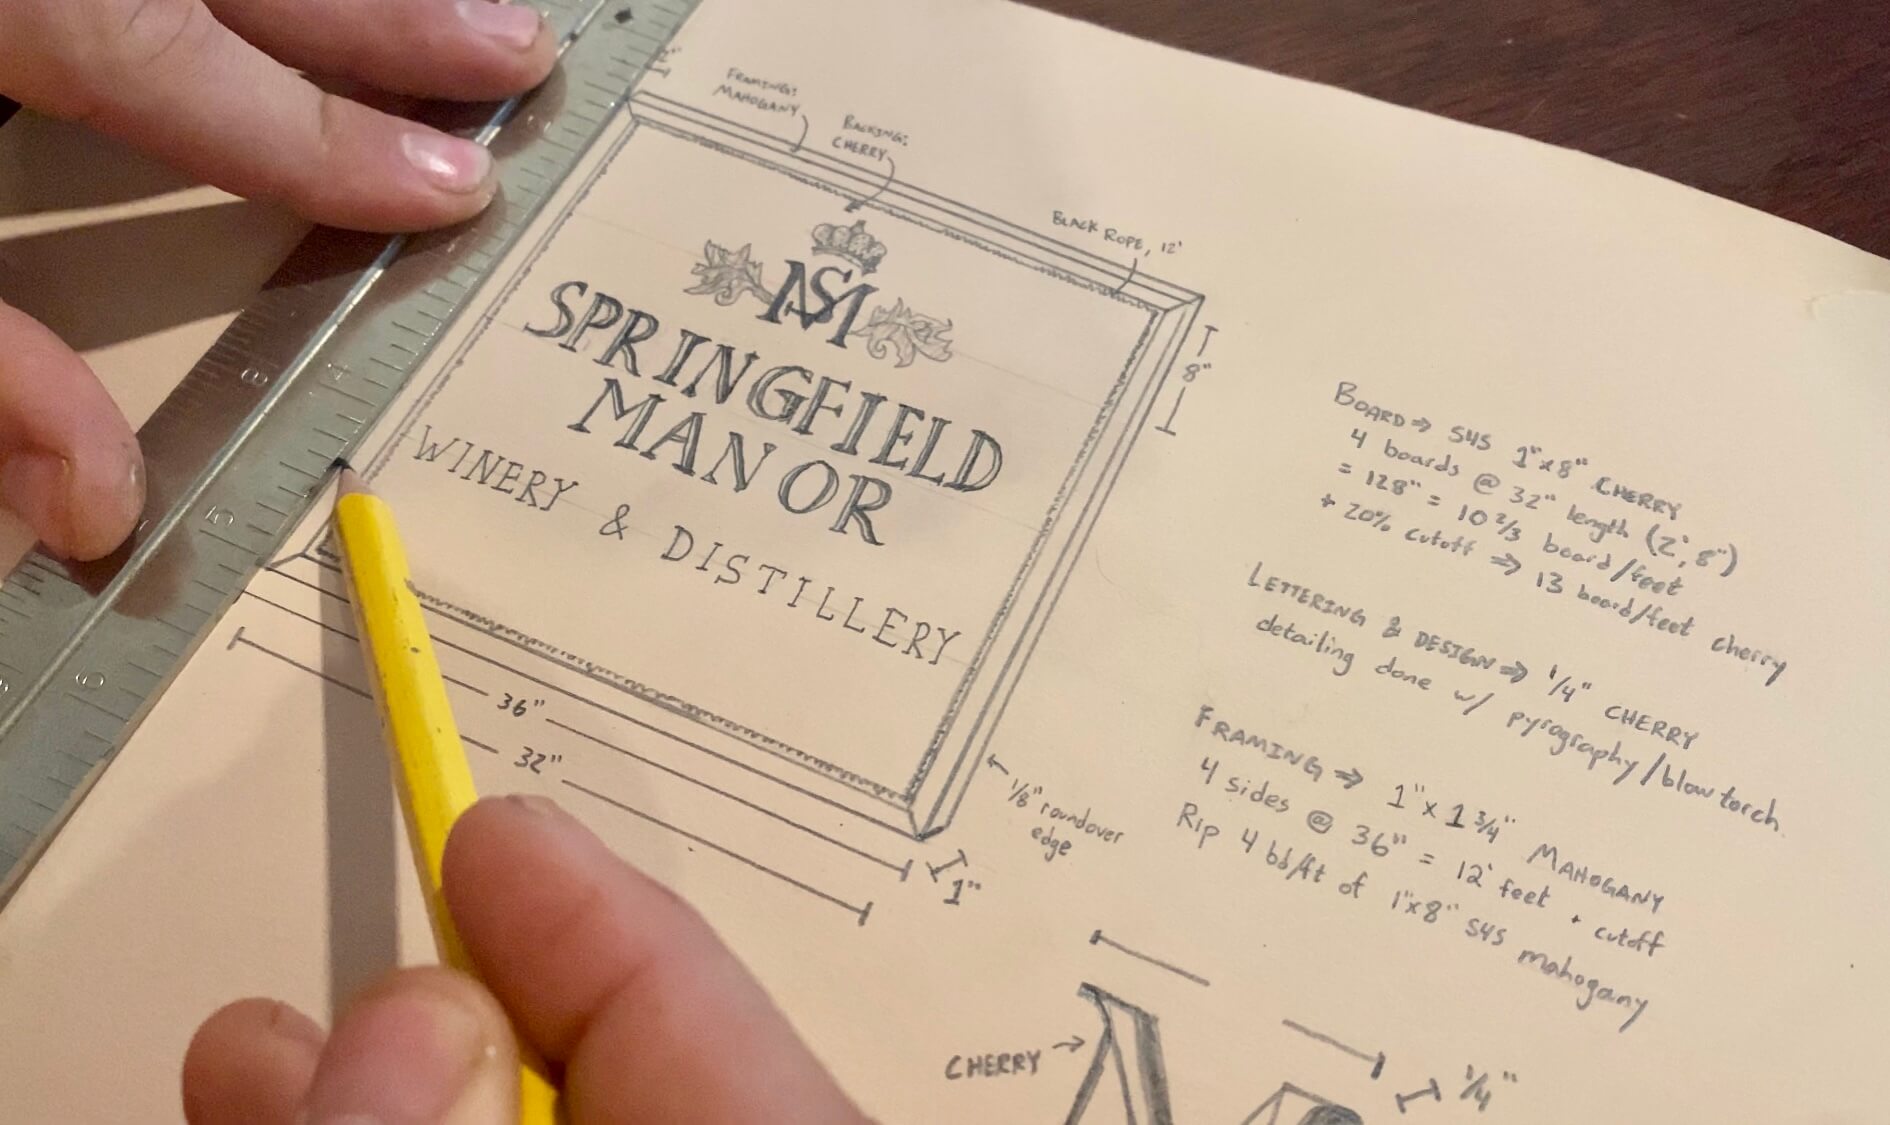 2"
FRAMING:
MAHOGANY
BACKING:
CHERRY
BLACK ROPE, 12'
SM
SPRINGFIELD
MANOR
WINERY & DISTILLERY
8"
36"
32"
1"
1/8" roundover
edge
BOARD ⇒ S4S 1"x8" CHERRY
4 boards @ 32" length (2', 8")
= 128" = 10 2/3 board/feet
+ 20% cutoff ⇒ 13 board/feet cherry
LETTERING & DESIGN ⇒ 1/4" CHERRY
detailing done w/ pyrography/blow torch
FRAMING ⇒ 1" x 1 3/4" MAHOGANY
4 sides @ 36" = 12' feet + cutoff
Rip 4 bd/ft of 1"x8" S4S mahogany
CHERRY →
1/4"
8
4
5
6